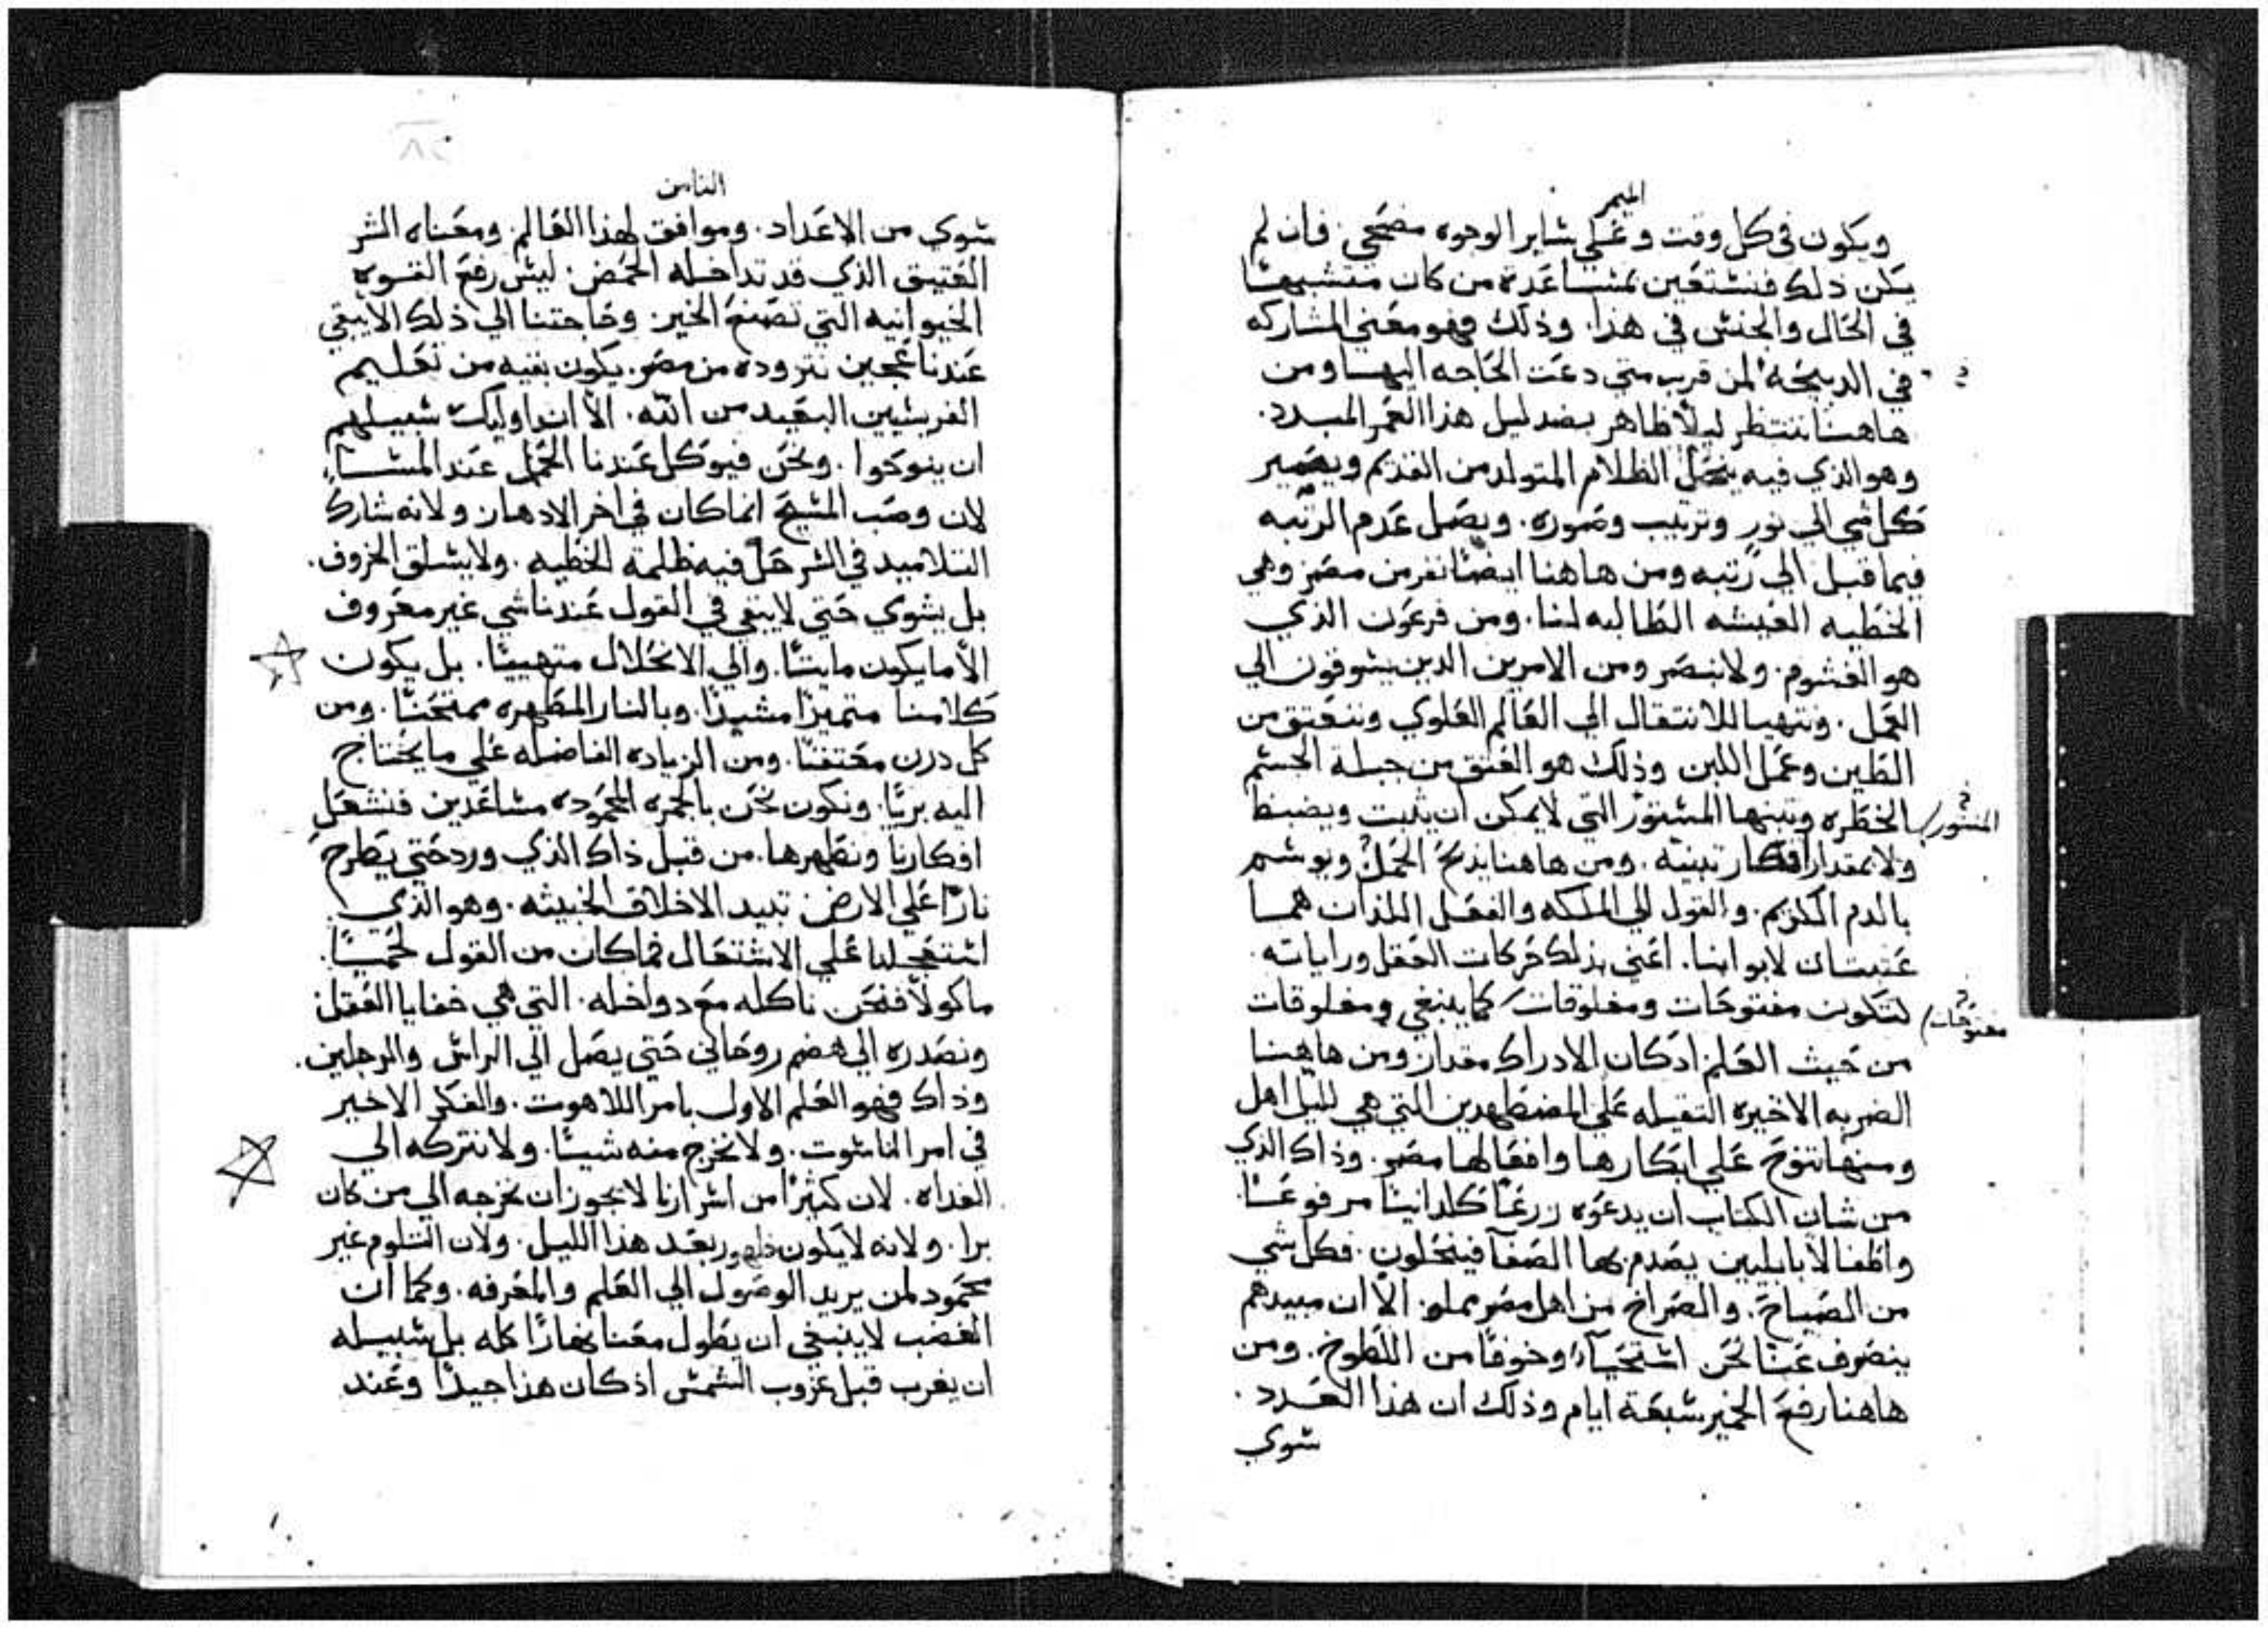 الميمر
ويكون في كل وقت وعلي ساير الوجوه مضحي. فان لم
يكن ذلك فنستعين بمساعدة من كان متشبهًا
في الحال والجنس في هذا. وذلك فهو معني المشاركه
في الدبيحة لمن قرب متي دعت الحاجه اليها ومن
هاهنا ننتظر ليلًا ظاهر بضد ليل هذا العمر المبدد.
وهو الذي فيه ينحل الظلام المتولد من القديم ويصير
كل شي الي نور وترتيب وصوره. ويصل عدم الرتبه
فيما قبل الي رتبه ومن هاهنا ايضًا نفر من مصر وهي
الخطيه العبسه الطالبه لنا. ومن فرعون الذي
هو الغشوم. ولا ينصر ومن الامرين الدين يسوقون الي
العمل. ونتهيا للانتقال الي العالم العلوي وننعتق من
الطين وعمل اللبن وذلك هو العتق من جبلة الجسم
الخطره وتبنها المستور التي لا يمكن ان يثبت ويضبط
المنثور
ولا بمقدار افكار تبنيه. ومن هاهنا يذبح الحمل ويوسم
بالدم الكريم. والقول الي الملكه والفعل اللذان هما
عتبتان لابوابنا. اعني بذلك حركات العقل وراياته
لتكون مفتوحات ومغلوقات كما ينبغي ومغلوقات
مفتوحات
من حيث العلم اذ كان الادراك مقدار ومن هاهنا
الضربه الاخيره الثقيله علي المضطهدين التي هي لليل اهل
ومنها تنوح علي ابكارها وافعالها مصر. وذاك الذي
من شان الكتاب ان يدعوه زرعًا كلدانيًا مرفوعًا
واطفالًا بابليين يصدم بها الصفا فينحلون. فكل شي
من الصياح. والصراخ من اهل مصر مملو. الّا ان مبيدهم
ينصرف عنا نحن استحياءً وخوفًا من اللطوخ. ومن
هاهنا رفع الخمير سبعة ايام وذلك ان هذا العدد
سوي
الثامن
سوي من الاعداد. وموافق لهذا العالم. ومعناه الشر
العتيق الذي قد تداخله الحمض. ليس رفع القوه
الحيوانيه التي تصنع الخير. وحاجتنا الي ذلك الا يبقي
عندنا عجين نتزوده من مصر. يكون بقيه من تعليم
الفريسيين البعيد من الله. الّا ان اوليك سبيلهم
ان ينوحوا. ونحن فيوكل عندنا الحمل عند المسا
لان وصب المسيح انما كان في اخر الادهار ولانه شارك
التلاميد في السر حل فيه ظلمة الخطيه. ولا يسلق الخروف.
بل يشوي حتي لا يبقي في القول عندنا شي غير معروف
الّا ما يكون مايتًا. والي الانحلال متهييًا. بل يكون
كلامنا متميزًا مشيدًا. وبالنار المطهره ممتحنًا. ومن
كل درن معتقتًا. ومن الزياده الفاضله علي ما يحتاج
اليه بريًا. ونكون نحن بالجمره المحموده مساعدين فنشعل
افكارنا ونطهرها. من قبل ذاك الذي ورد حتي يطرح
نارًا علي الارض تبيد الاخلاق الخبيثه. وهو الذي
استعجلنا علي الاشتعال فما كان من القول لحميًا.
ماكولًا فنحن ناكله مع دواخله. التي هي خفايا العقل
ونصدره الي هضم روحاني حتي يصل الي الراس والرجلين.
وذاك فهو العلم الاول بامر اللاهوت. والفكر الاخير
في امر الناسوت. ولا نخرج منه شيًا. ولا نتركه الي
الغداه. لان كثيرًا من اسرارنا لا يجوز ان نخرجه الي من كان
برا. ولانه لا يكون ظهور بعد هذا الليل. ولان التلوم غير
محمود لمن يريد الوصول الي العلم والمعرفه. وكما ان
الغضب لا ينبغي ان يطول معنا نهارًا كله بل سبيله
ان يغرب قبل غروب الشمس اذ كان هذا جيدًا وعند